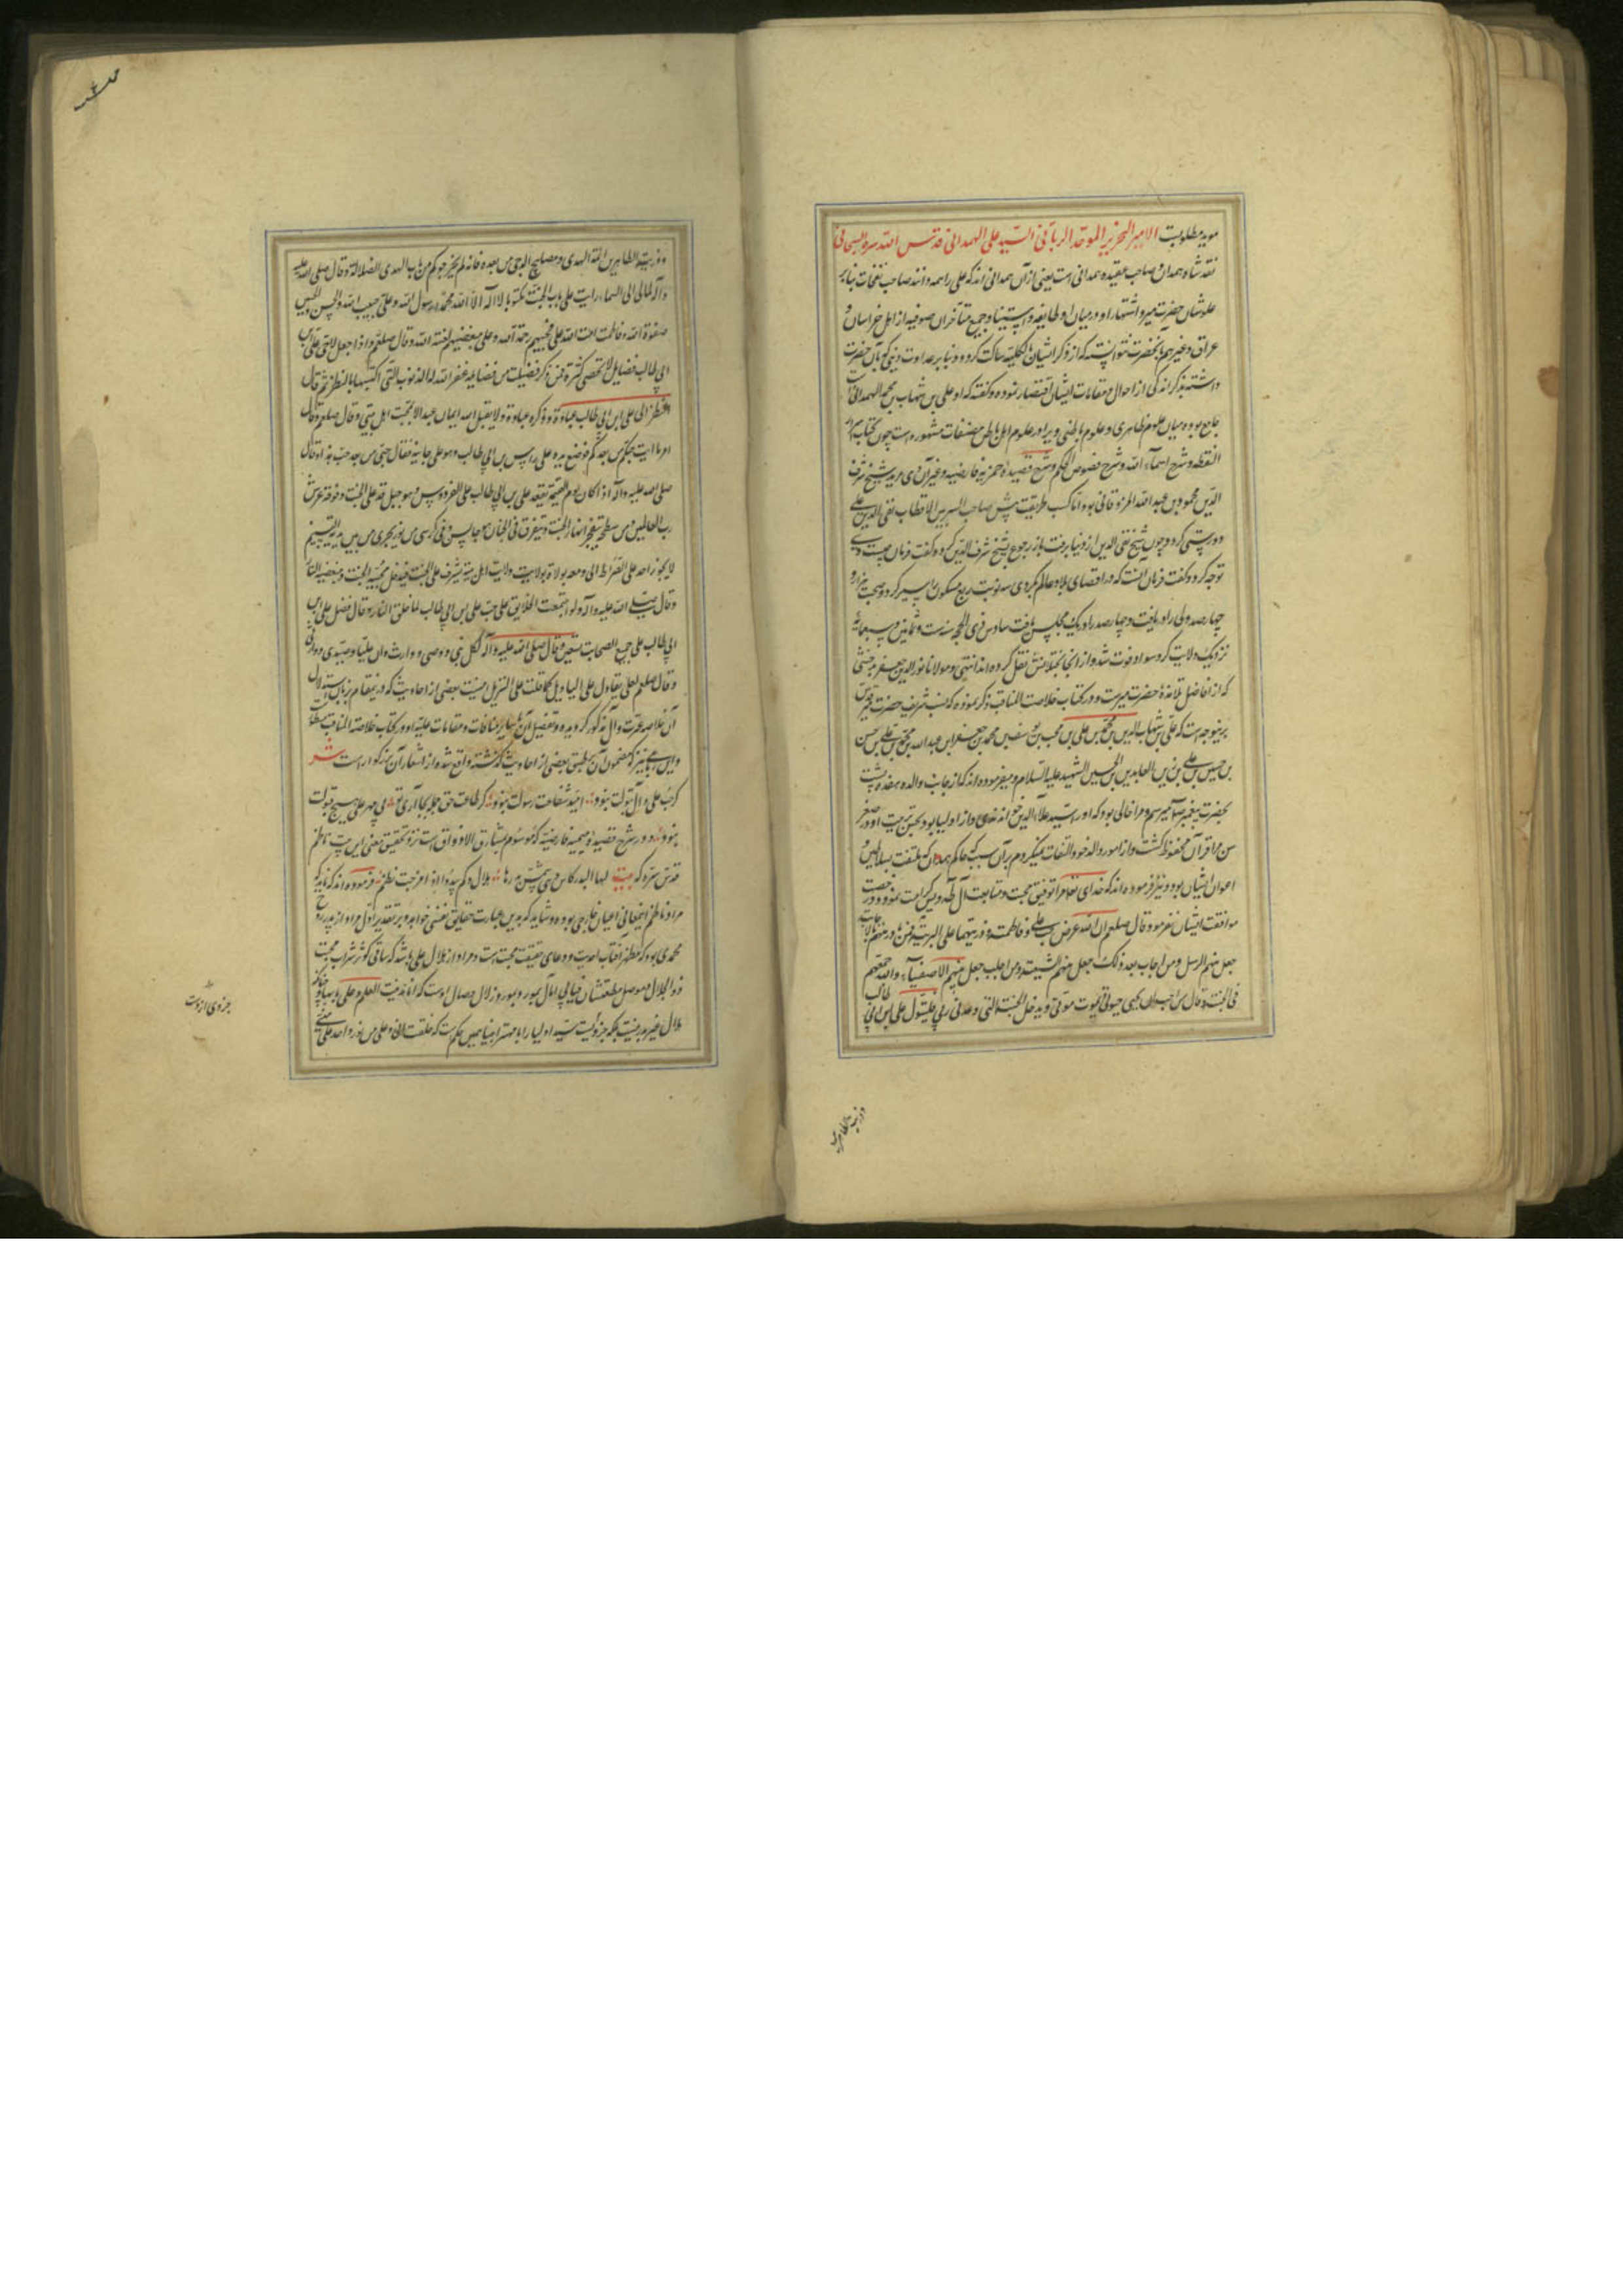 موید مطلوبست الامیر النحریر الموحد الربانی السید علی الهمدانی قدس الله سره السبحانی
نقد شاه همدان صاحب عقیده همدانی است یعنی از آن همدانی اند که علی را همه دانند صاحب نفحات بنابر
علو شان حضرت میر و اشتهار او در میان او طایفه و جمیع متأخران صوفیه از اهل خراسان و
عراق و غیرهم بآنحضرت نتوانسته که از ذکر ایشان بالکلیه ساکت گردد و بنابر عداوت دینی که بآن حضرت
داشته بذکر اندکی از احوال و مقامات ایشان اقتصار نموده و گفته که او علی بن شهاب بن محمد الهمدانیست
جامع بوده میان علوم ظاهری و علوم باطنی ویرا در علوم اهل باطن مصنفات مشهوره است چون کتاب اسرار
النقطه و شرح اسماء الله و شرح فصوص الحکم و شرح قصیده خمریه فارضیه و غیر آن وی مرید شیخ شرف
الدین محمود بن عبد الله المزدقانی بود اما کسب طریقت پیش صاحب السر بین الاقطاب تقی الدین علی
دوستی کرد و چون شیخ تقی الدین از دنیا برفت باز رجوع بشیخ شرف الدین کرد و گفت فرمان چیست وی
توجه کرد و گفت فرمان آنست که در اقصای بلاد عالم بگردی سه نوبت ربع مسکون را سیر کرد و صحبت هزار و
چهارصد ولی را دریافت و چهارصد را در یک مجلس یافت سادس ذی الحجه سنه ست و ثمانین و سبعمائه
نزدیک ولایت کبر و سواد فوت شد و از آنجا بختلانش نقل کرده اند انتهی و مولانا نور الدین جعفر بدخشی
که از افاضل تلامذه حضرت میرست و در کتاب خلاصة المناقب ذکر نموده که نسب شریف حضرت میر قدس
برینوجه است که علی بن شهاب الدین بن محمد بن علی بن یوسف بن محب بن محمد بن جعفر ابن عبد الله بن محمد بن علی بن حسن
بن حسین بن علی بن زین العابدین بن الحسین الشهید علیه السلام و میفرموده اند که از جانب والده هفده پشت
بحضرت پیغمبر صلعم میرسم و مرا خالی بود که او را سید علاء الدین خوانندی و از اولیا بود بحسن تربیت او در صغر
سن مرا قرآن محفوظ گشت و از امور والد خود التفات نمیکردم بر آن سبب که حاکم همدان که ملتفت بسلاطین و
اعوان ایشان بود و نیز فرموده اند که خدای تعالی مرا توفیق محبت و متابعت آل طه و یس کرامت نمود و در
موافقت ایشان بفرمود قال صلعم ان الله عرض حب علی و فاطمة و ذریتهما علی البریة فمن بادر منهم بالاجابة
جعل منهم الرسل و من اجاب بعد ذلک جعل منهم الشیعة و من اجلب جعل منهم الاصفیاء و الله جمعهم
فی الجنة و قال من احب ان یحیی حیوتی و یموت موتی و یدخل الجنة التی وعدنی ربی فلیتول علی ابن ابی طالب
و ذریته الطاهرین
و ذریته الطاهرین ائمة الهدی و مصابیح الدجی من بعده فانه لم یخرجوکم من باب الهدی الی باب الضلالة و قال صلی الله علیه
و آله لما اسری بی الی السماء رایت علی باب الجنة مکتوبا لا اله الا الله محمد رسول الله و علی حبیب الله و الحسن و الحسین
صفوة الله و فاطمة امة الله علی محبیهم رحمة الله و علی مبغضیهم لعنة الله و قال صلعم و اذا جعل لاخی علی بن
ابی طالب فضایل لا تحصی کثرة فمن ذکر فضیلة من فضایله غفر الله له الذنوب التی اکتسبها بالنظر ثم قال
النظر الی علی ابن ابی طالب عبادة و ذکره عبادة و لا یقبل الله ایمان عبد الا بمحبة اهل بیتی و قال صلعم
صلی الله علیه و آله اذا کان یوم القیمة یقعد علی بن ابی طالب علی الفردوس و هو جبل قد علا علی الجنة و فوقه عرش
رب العالمین و من سفحه یتفجر انهار الجنة و یتفرق فی الجنان و هو جالس علی کرسی من نور یجری من بین یدیه التسنیم
لا یجوز احد علی الصراط الا و معه براة بولایته و ولایة اهل بیته یشرف علی الجنة فیدخل محبیه الجنة و مبغضیه النار
و قال صلی الله علیه و آله لو اجتمعت الخلایق علی حب علی بن ابی طالب لما خلقت النار و قال فضل علی بن
ابی طالب علی جمیع الصحابة بسبعین و قال صلی الله علیه و آله لکل نبی وصی و وارث و ان علیا وصیی و وارثی
و قال صلعم لعلی یقاتل علی التاویل کما قاتلت علی التنزیل اینست بعضی از احادیث که در ینمقام بر زبان
آن خلاصه عترت و آل مذکور گردیده و تفصیل آن با سایر مکاشفات و مقامات علیه او در کتاب خلاصة المناقب مسطور
و این رباعی نیز که مضمون آن مطابق بعضی از احادیث گذشته واقع شده از اشعار آن بزرگوار است شعر
گر حب علی و آل بتولت نبود امید شفاعت رسولت نبود گر طاعت حق جمله بجا آری تو بی مهر علی هیچ قبولت
نبود و در شرح قصیده میمیه فارضیه که موسوم بمشارق الاذواق است نزد تحقیق معنی این بیت ناظم
قدس سره که بیت لها البدر کاس و هی شمس یدیرها هلال و کم یبدو اذا مزجت نجم فرموده اند که
مراد ناظم اینمعانی اعیان خارجی بوده و شاید که بدین عبارت حقایق نفسی خواهد و بر تقدیر اول مراد از بدر روح
محمدی بود که مظهر آفتاب احدیت و وعای حقیقت محبت است و مراد از هلال علی باشد که ساقی کوثر شراب محبت
ذو الجلال و موصل متعطشان فیافی آمال بمورد زلال وصال اوست که انا مدینة العلم و علی بابها و چنانکه
هلال غیر بدر نیست بلکه جزویست سید اولیا را با مهتر انبیا همین حکم است که خلقت انا و علی من نور واحد علی منی
جزوی از وست